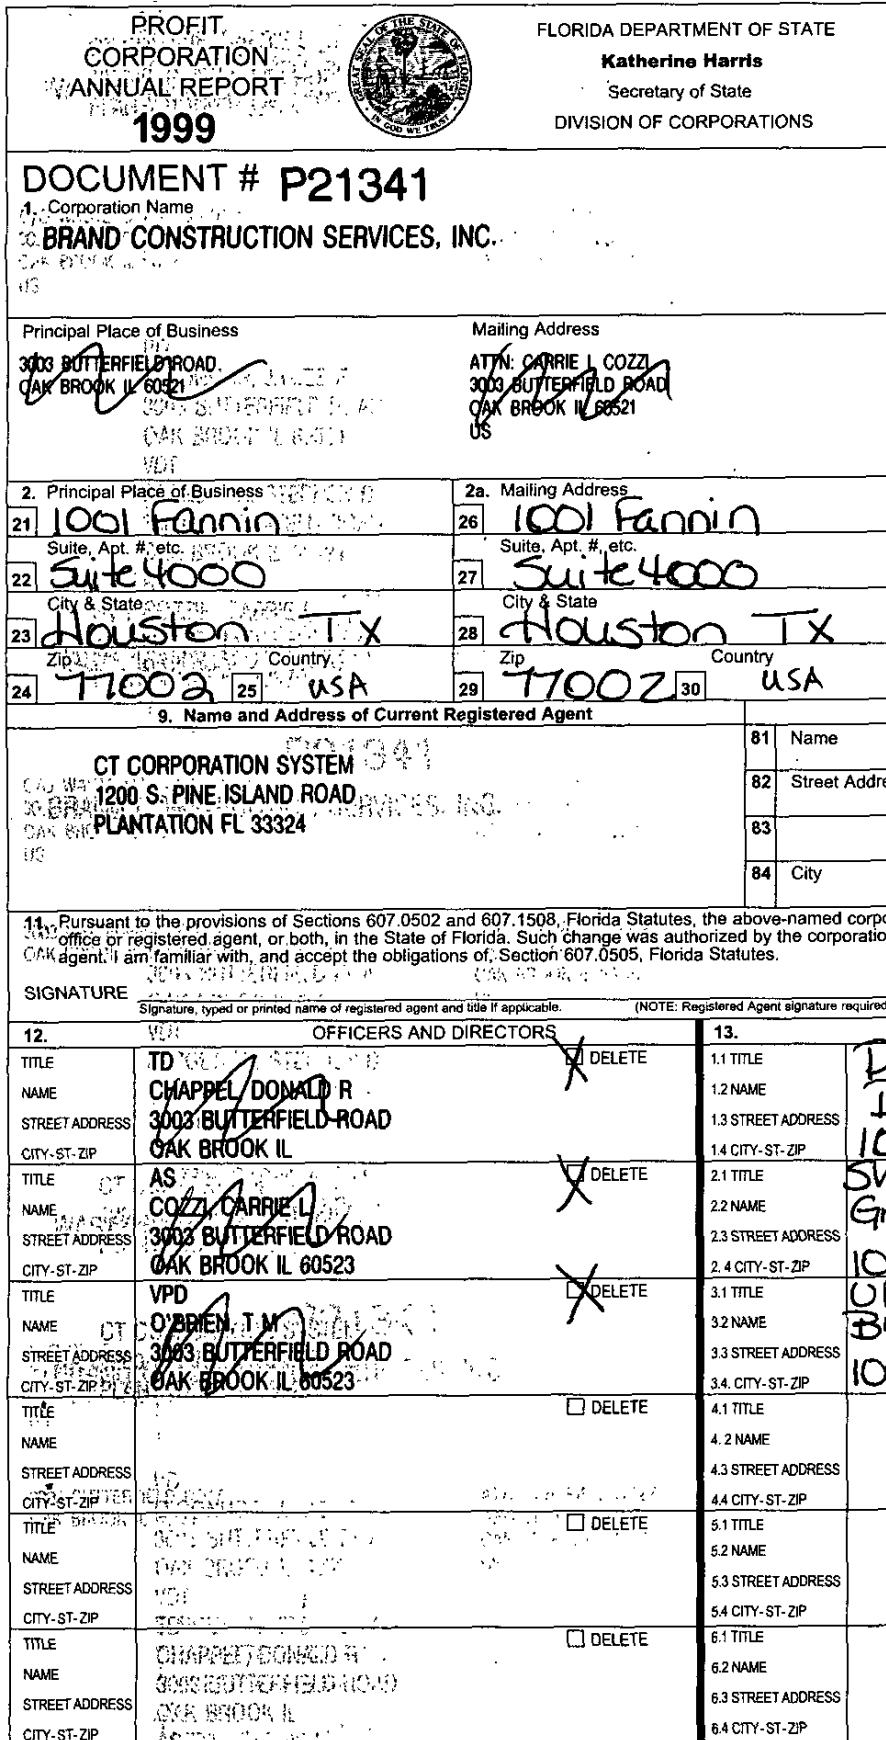 PROFIT
CORPORATION
ANNUAL REPORT
1999
GREAT SEAL OF THE STATE OF FLORIDA
IN GOD WE TRUST
FLORIDA DEPARTMENT OF STATE
Katherine Harris
Secretary of State
DIVISION OF CORPORATIONS
DOCUMENT # P21341
1. Corporation Name
BRAND CONSTRUCTION SERVICES, INC.
Principal Place of Business
3003 BUTTERFIELD ROAD
OAK BROOK IL 60521
Mailing Address
ATTN: CARRIE L COZZI
3003 BUTTERFIELD ROAD
OAK BROOK IL 60521
US
2. Principal Place of Business
21 1001 Fannin
Suite, Apt. #, etc.
22 Suite 4000
City & State
23 Houston TX
Zip Country
24 77002 25 USA
2a. Mailing Address
26 1001 Fannin
Suite, Apt. #, etc.
27 Suite 4000
City & State
28 Houston TX
Zip Country
29 77002 30 USA
9. Name and Address of Current Registered Agent
CT CORPORATION SYSTEM
1200 S. PINE ISLAND ROAD
PLANTATION FL 33324
81 Name
82 Street Addre
83
84 City
11. Pursuant to the provisions of Sections 607.0502 and 607.1508, Florida Statutes, the above-named corpo
office or registered agent, or both, in the State of Florida. Such change was authorized by the corporatio
agent. I am familiar with, and accept the obligations of, Section 607.0505, Florida Statutes.
SIGNATURE
Signature, typed or printed name of registered agent and title if applicable. (NOTE: Registered Agent signature required
12. OFFICERS AND DIRECTORS 13.
TITLE TD DELETE
NAME CHAPPEL, DONALD R
STREET ADDRESS 3003 BUTTERFIELD ROAD
CITY-ST-ZIP OAK BROOK IL
TITLE AS DELETE
NAME COZZI, CARRIE L
STREET ADDRESS 3003 BUTTERFIELD ROAD
CITY-ST-ZIP OAK BROOK IL 60523
TITLE VPD DELETE
NAME O'BRIEN, T M
STREET ADDRESS 3003 BUTTERFIELD ROAD
CITY-ST-ZIP OAK BROOK IL 60523
TITLE DELETE
NAME
STREET ADDRESS
CITY-ST-ZIP
TITLE DELETE
NAME
STREET ADDRESS
CITY-ST-ZIP
TITLE DELETE
NAME
STREET ADDRESS
CITY-ST-ZIP
1.1 TITLE
1.2 NAME
1.3 STREET ADDRESS
1.4 CITY-ST-ZIP
2.1 TITLE
2.2 NAME
2.3 STREET ADDRESS
2.4 CITY-ST-ZIP
3.1 TITLE
3.2 NAME
3.3 STREET ADDRESS
3.4. CITY-ST-ZIP
4.1 TITLE
4.2 NAME
4.3 STREET ADDRESS
4.4 CITY-ST-ZIP
5.1 TITLE
5.2 NAME
5.3 STREET ADDRESS
5.4 CITY-ST-ZIP
6.1 TITLE
6.2 NAME
6.3 STREET ADDRESS
6.4 CITY-ST-ZIP